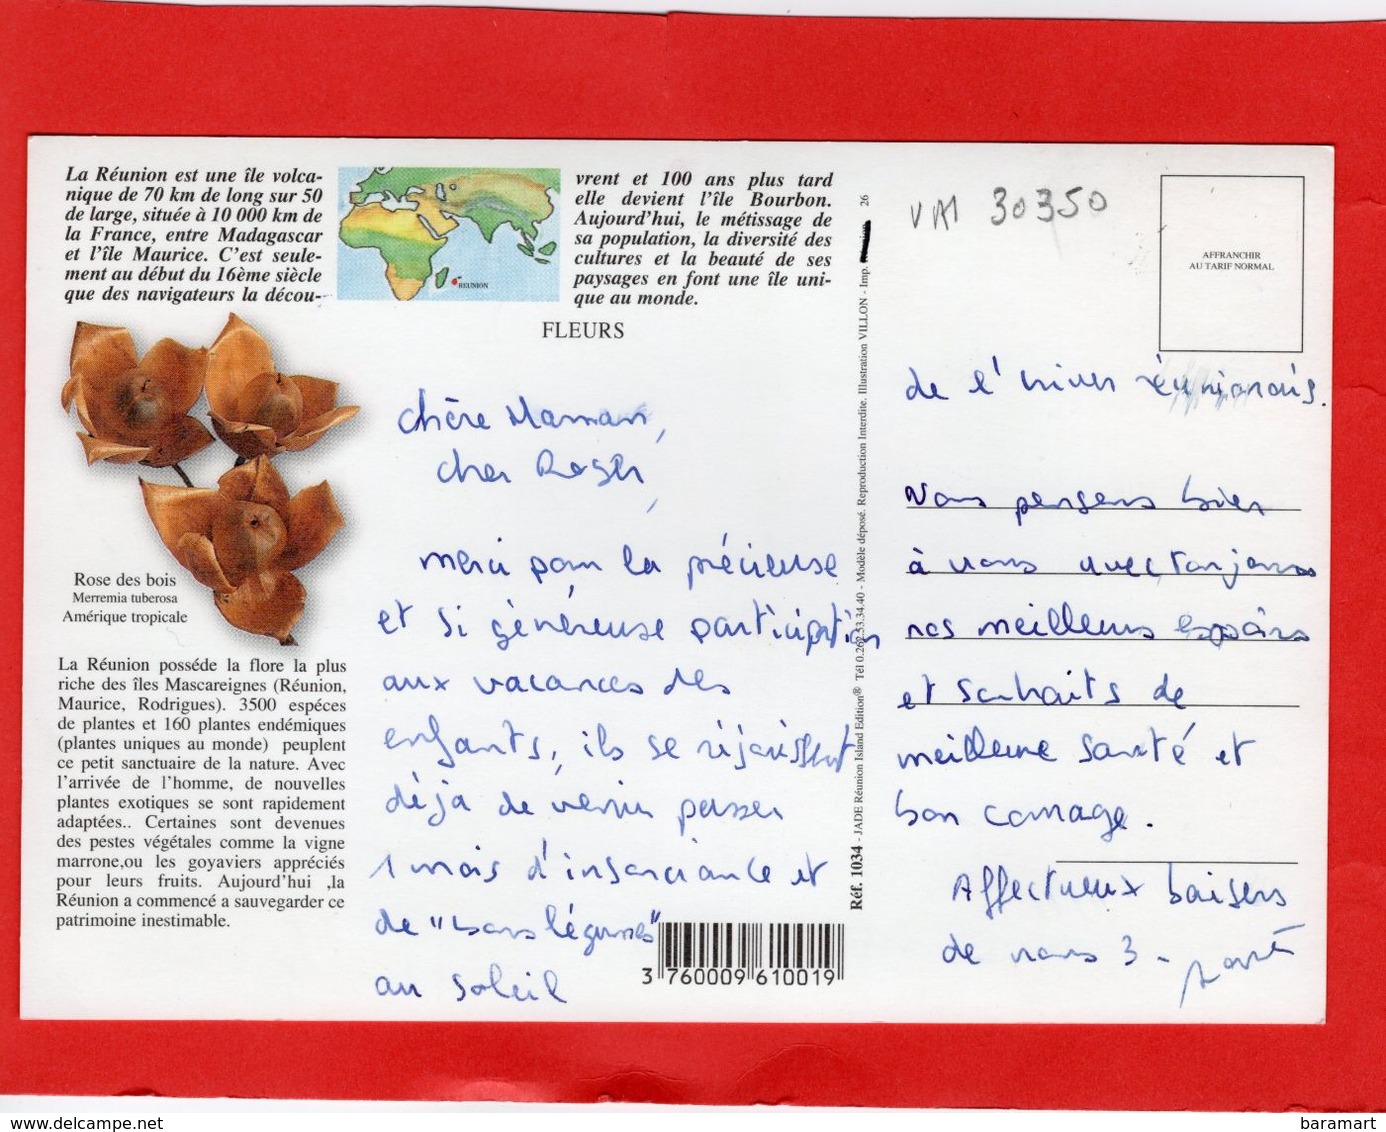 La Réunion est une île volca-
nique de 70 km de long sur 50
de large, située à 10 000 km de
la France, entre Madagascar
et l'île Maurice. C'est seule-
ment au début du 16ème siècle
que des navigateurs la décou-
REUNION
vrent et 100 ans plus tard
elle devient l'île Bourbon.
Aujourd'hui, le métissage de
sa population, la diversité des
cultures et la beauté de ses
paysages en font une île uni-
que au monde.
FLEURS
Rose des bois
Merremia tuberosa
Amérique tropicale
La Réunion posséde la flore la plus
riche des îles Mascareignes (Réunion,
Maurice, Rodrigues). 3500 espéces
de plantes et 160 plantes endémiques
(plantes uniques au monde) peuplent
ce petit sanctuaire de la nature. Avec
l'arrivée de l'homme, de nouvelles
plantes exotiques se sont rapidement
adaptées.. Certaines sont devenues
des pestes végétales comme la vigne
marrone,ou les goyaviers appréciés
pour leurs fruits. Aujourd'hui ,la
Réunion a commencé a sauvegarder ce
patrimoine inestimable.
chère Maman,
cher Roger,
merci pour la précieuse
et si généreuse participation
aux vacances des
enfants, ils se réjouissent
déjà de venir passer
1 mois d'insouciance et
de "bons légumes"
au soleil
3 760009 610019
Réf. 1034 - JADE Réunion Island Edition® Tél 0.262.53.34.40 - Modèle déposé. Reproduction Interdite. Illustration VILLON - Imp. 26
VAI 30350
AFFRANCHIR
AU TARIF NORMAL
de l'hiver réunionnais.
Nous pensons bien
à vous avec toujours
nos meilleurs espoirs
et souhaits de
meilleure santé et
bon courage.
Affectueux baisers
de nous 3 -
baramart